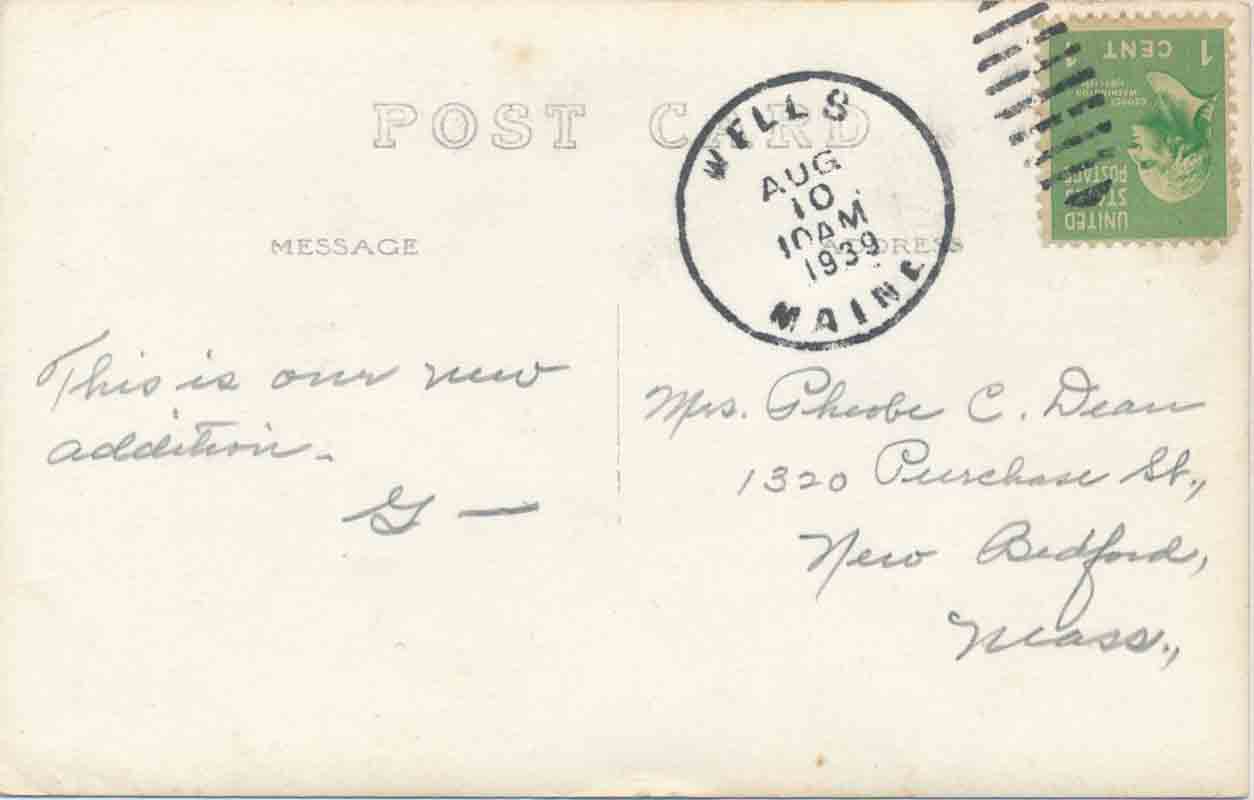 POST CARD
WELLS
AUG
10
10AM
1939
MAINE
1 CENT 1
GEORGE
WASHINGTON
UNITED
STATES
POSTAGE
MESSAGE
ADDRESS
This is our new
addition.
G —
Mrs. Pheobe C. Dean
1320 Purchase St.,
New Bedford,
Mass.,